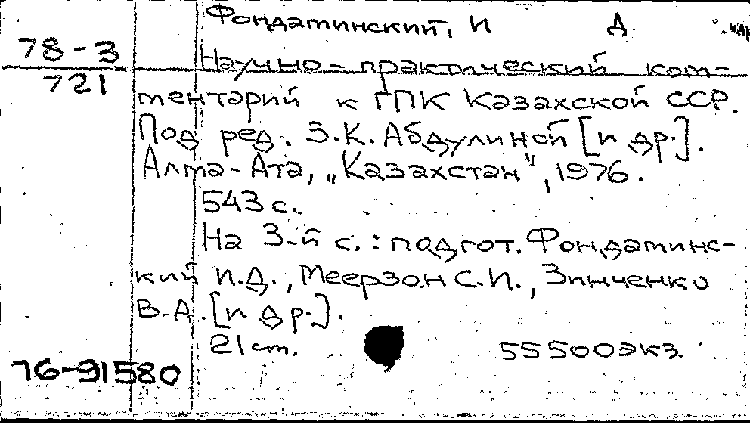 Фондатинский, И Д
78-3
721
Научно-практический ком-
ментарий к ГПК Казахской ССР.
Под ред. З.К. Абдулиной [и др.].
Алма-Ата, „Казахстан", 1976.
543 с.
На 3-й с.: подгот. Фондатинс-
кий И.Д., Меерзон С.И., Зинченко
В.А. [и др.].
21 см.
55500 экз.
76-91580